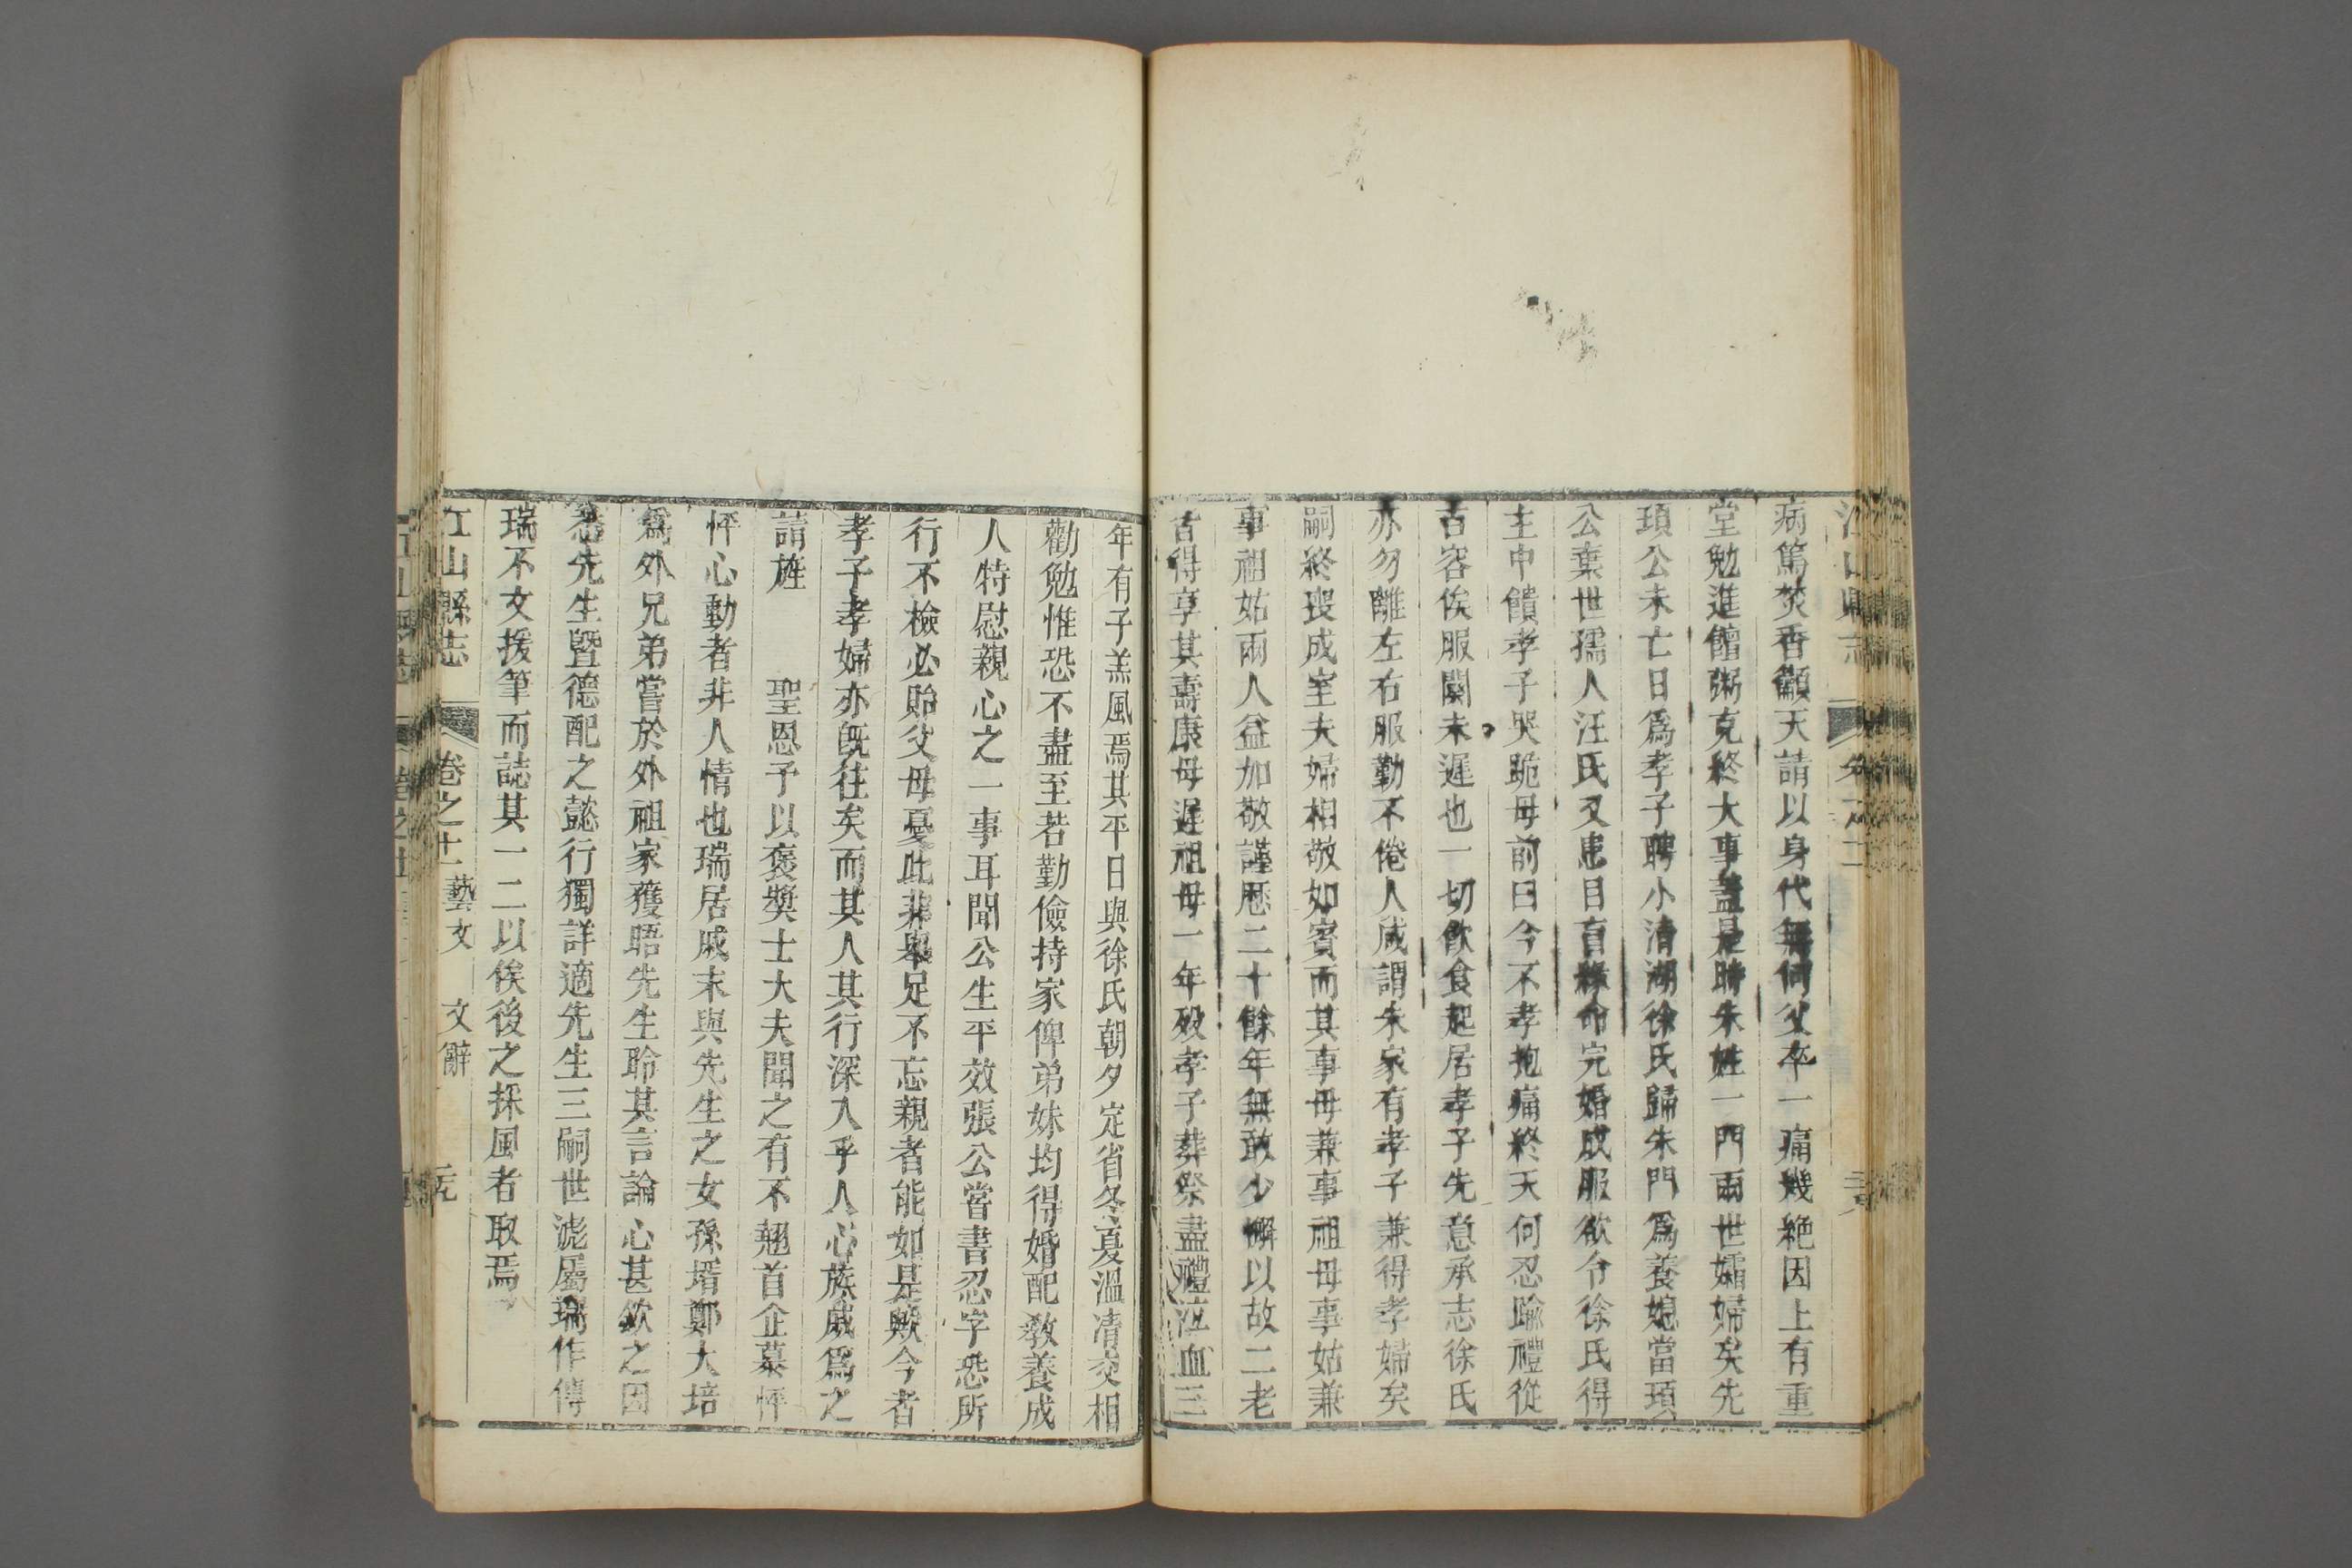 病篤焚香籲天請以身代無何父卒一痛幾絶因上有重
堂勉進饘粥克終大事蓋是時朱姓一門兩世孀婦矣先
頊公未亡日爲孝子聘小清湖徐氏歸朱門爲養媳當頊
公棄世孺人汪氏又患目盲縁命完婚成服欲令徐氏得
主中饋孝子哭跪母前曰今不孝抱痛終天何忍踰禮從
吉容俟服闋未遲也一切飲食起居孝子先意承志徐氏
亦勿離左右服勤不倦人咸謂朱家有孝子兼得孝婦矣
嗣終喪成室夫婦相敬如賓而其事母兼事祖母事姑兼
事祖姑兩人益加敬謹歴二十餘年無敢少懈以故二老
皆得享其壽康母遲祖母一年歿孝子葬祭盡禮泣血三
年有子羔風焉其平日與徐氏朝夕定省冬夏溫凊交相
勸勉惟恐不盡至若勤儉持家俾弟妹均得婚配教養成
人特慰親心之一事耳聞公生平效張公當書忍字恐所
行不檢必貽父母憂此非舉足不忘親者能如是歟今者
孝子孝婦亦旣往矣而其人其行深入乎人心族戚爲之
請旌
聖恩予以褒獎士大夫聞之有不翹首企慕怦
怦心動者非人情也瑞居戚末與先生之女孫壻鄭大培
爲外兄弟嘗於外祖家獲晤先生聆其言論心甚欽之因
悉先生暨德配之懿行獨詳適先生三嗣世滮屬瑞作傳
瑞不文援筆而誌其一二以俟後之採風者取焉
江山縣志
卷之十一
藝文
文辭